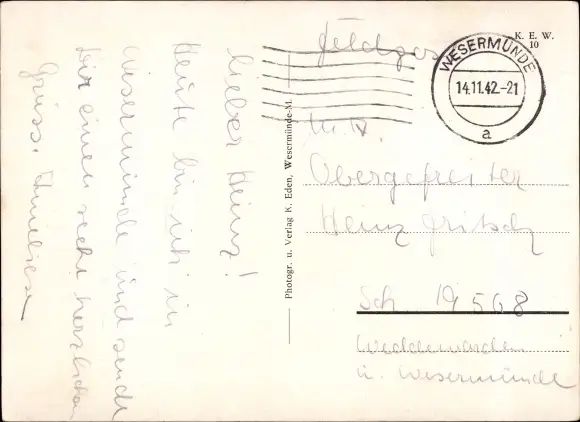 Lieber Heinz!
Heute bin ich in
Wesermünde und sende
Dir einen recht herzlichen
Gruss. Anneliese
Photogr. u. Verlag K. Eden, Wesermünde-M.
K. E. W.
10
Feldpost
WESERMÜNDE
14.11.42.-21
a
Obergefreiter
Heinz Fritsch
Sch 19568
Weddewarden
ü. Wesermünde